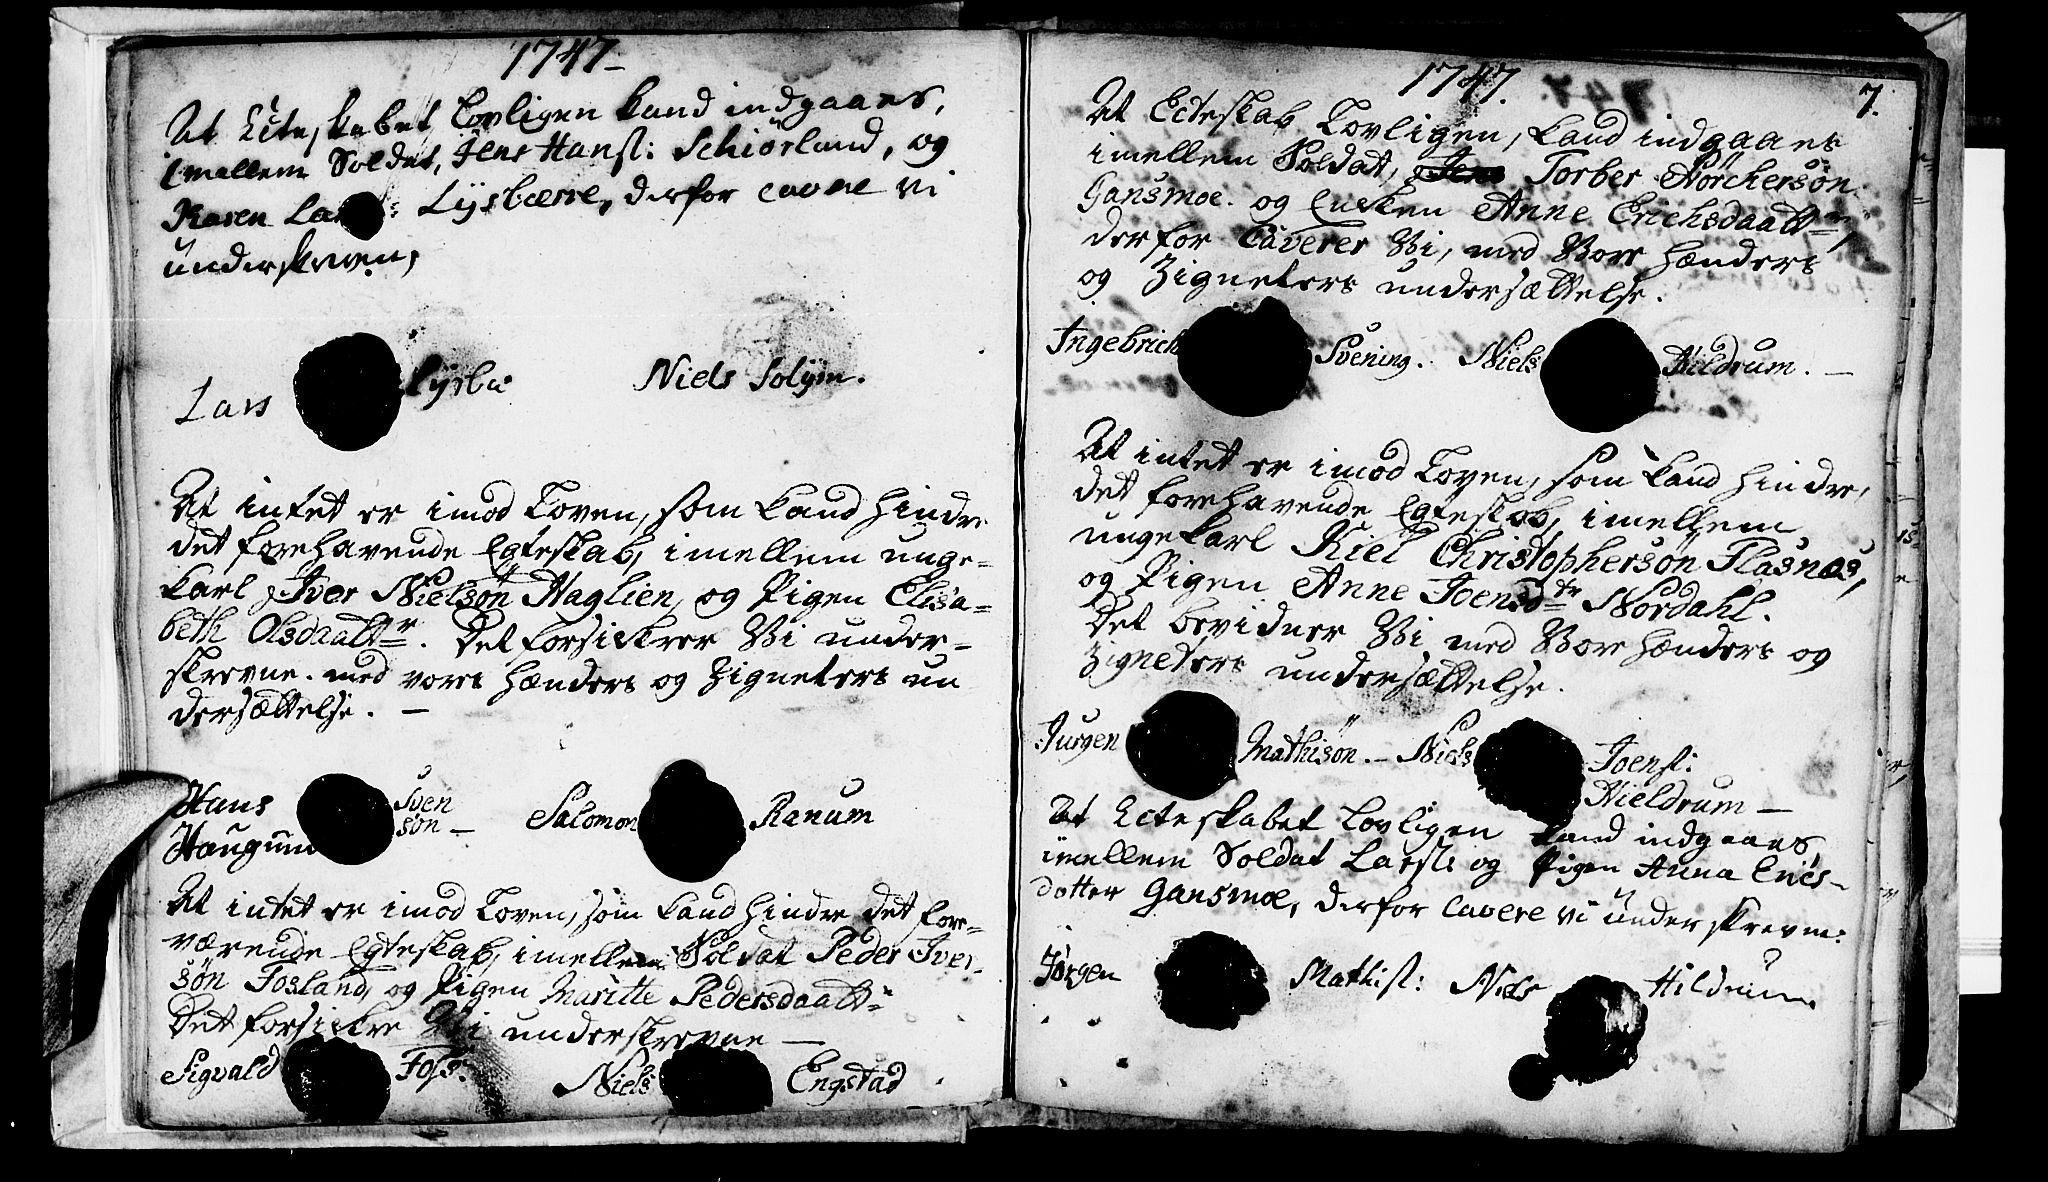 1747
At Ecteskabet Lovligen kand indgaaes,
imellem Soldat, Jens Hansl: Schiörland, og
Karen Lysbærre, derfor cavere vi
underskreven,
Lars Lysbe:
Niels Solÿm.
At intet er imod Loven, som kand hindre
det forehavende Egteskab, imellem unge-
karl, Iver Nielsön Haglien, og Pigen Elisa=
beth Olsdaattr. Det forsickrer Vi under-
skrevne. med vores hænders og Zigneters un
dersættelse. —
Hans Sven
sön —
Haugum
Salomon Ranum
At intet er imod Loven, som kand hindre det fore-
værende Egteskab, imellem Soldat Peder Iver-
sön Fosland, og Pigen Maritte Pedersdaatt:
Det forsickre Vi underskrevne —
Sigvald Foss:
Niels Engstad
1747. 7.
At Ecteskab Lovligen, kand indgaaes
imellem Soldat, Torber Nörchersön
Gansmoe. og Encken Anne Erichsdaattr,
derfor Caverer Vi, med Vore hænders
og Zigneters undersættelse.
Ingebrich Svening. Niels Hildrum. —
At intet er imod Loven, som kand hindre,
det forehavende Egteskab, imellem
ungekarl Kiel Christophersön Flasnæs,
og Pigen Anne Joensdtr Nordahl.
Det bevidner Vi med Vore hænders og
Zigneters undersættelse.
Jurgen Mathisön. — Niels Joensl:
Hieldrum —
At Ecteskabet Lovligen kand indgaaes
imellem Soldat Larsl: og Pigen Anna Erics-
dotter Gansmoe, derfor cavere vi underskrevne:
Jörgen Mathisl: Niels Hildrum